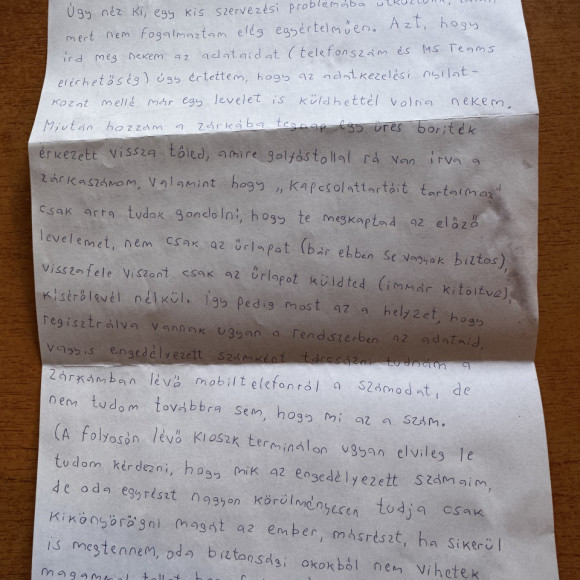 Úgy néz ki, egy kis szervezési problémába ütköztünk,
mert nem fogalmaztam elég egyértelműen. Azt, hogy
írd meg nekem az adataidat (telefonszám és MS Teams
elérhetőség) úgy értettem, hogy az adatkezelési nyilat-
kozat mellé már egy levelet is küldhettél volna nekem.
Miután hozzám a zárkába tegnap egy üres boríték
érkezett vissza tőled, amire golyóstollal rá van írva a
zárkaszámom, valamint hogy „kapcsolattartóit tartalmaz"
csak arra tudok gondolni, hogy te megkaptad az előző
levelemet, nem csak az űrlapot (bár ebben se vagyok biztos),
visszafele viszont csak az űrlapot küldted (immár kitöltve),
kísérőlevél nélkül. Így pedig most az a helyzet, hogy
regisztrálva vannak ugyan a rendszerben az adataid,
vagyis engedélyezett számként tárcsázni tudnám a
zárkámban lévő mobiltelefonról a számodat, de
nem tudom továbbra sem, hogy mi az a szám.
(A folyosón lévő kioszk terminálon ugyan elvileg le
tudom kérdezni, hogy mik az engedélyezett számaim,
de oda egyrészt nagyon körülményesen tudja csak
kikönyörögni magát az ember, másrészt, ha sikerül
is megtennem, oda biztonsági okokból nem vihetek
magammal tollat